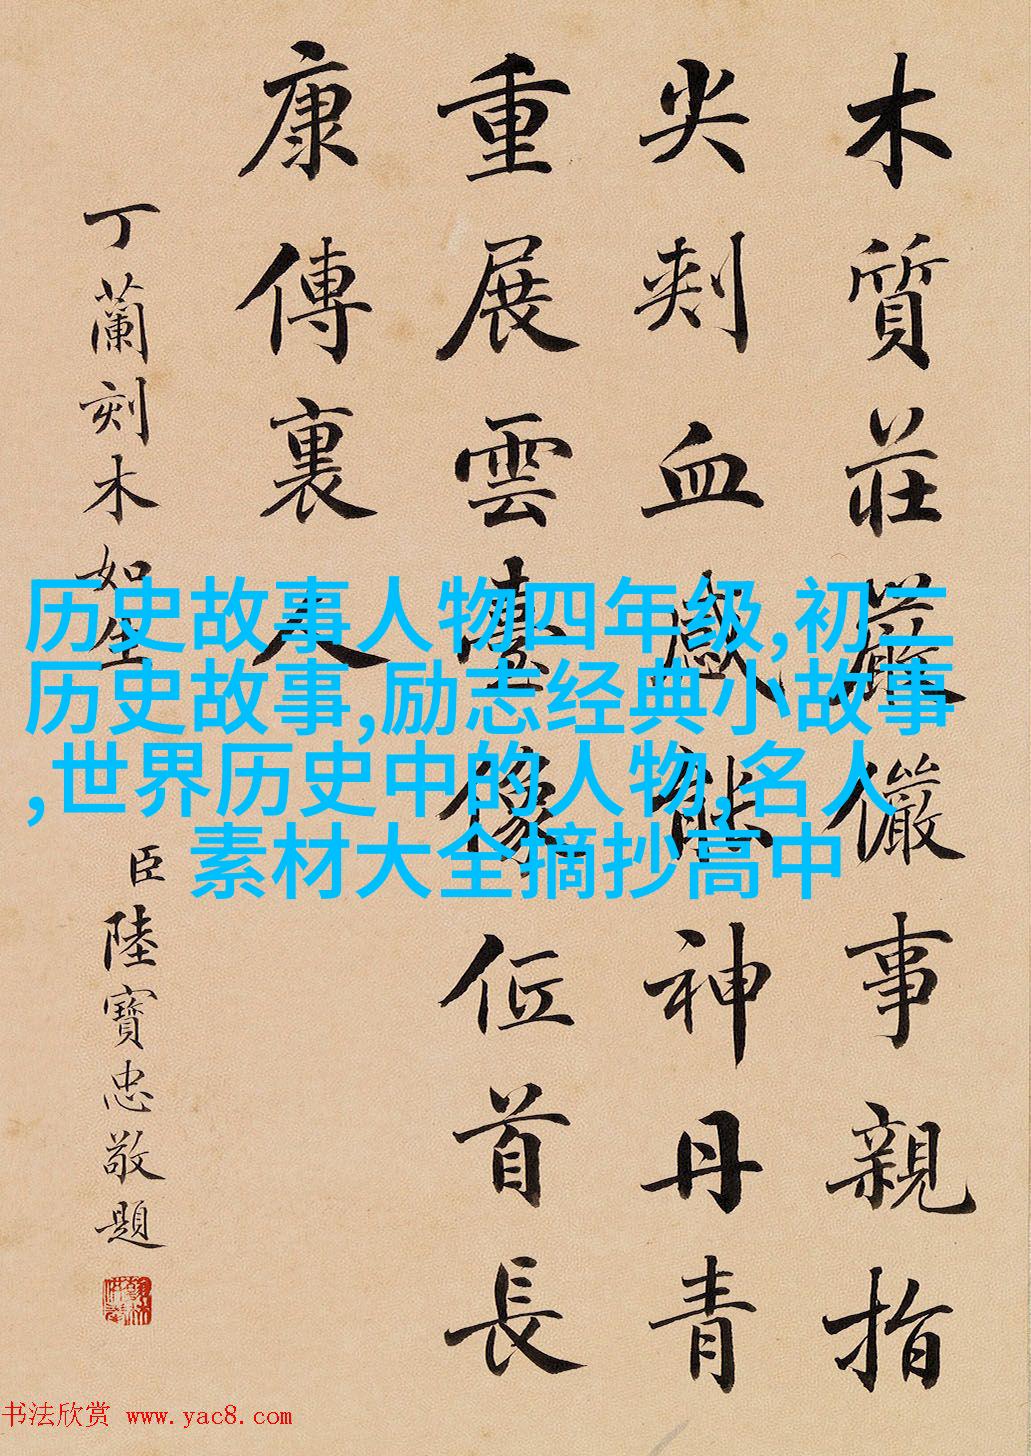 木質莊嚴儼事親指
尖刾血感能神丹青
重展雲臺像位首長
康傳裏人
丁蘭刻木如生
臣陸寶忠敬題
历史故事人物四年级,初二
历史故事,励志经典小故事
,世界历史中的人物,名人
素材大全摘抄高中
书法欣赏 www.yac8.com